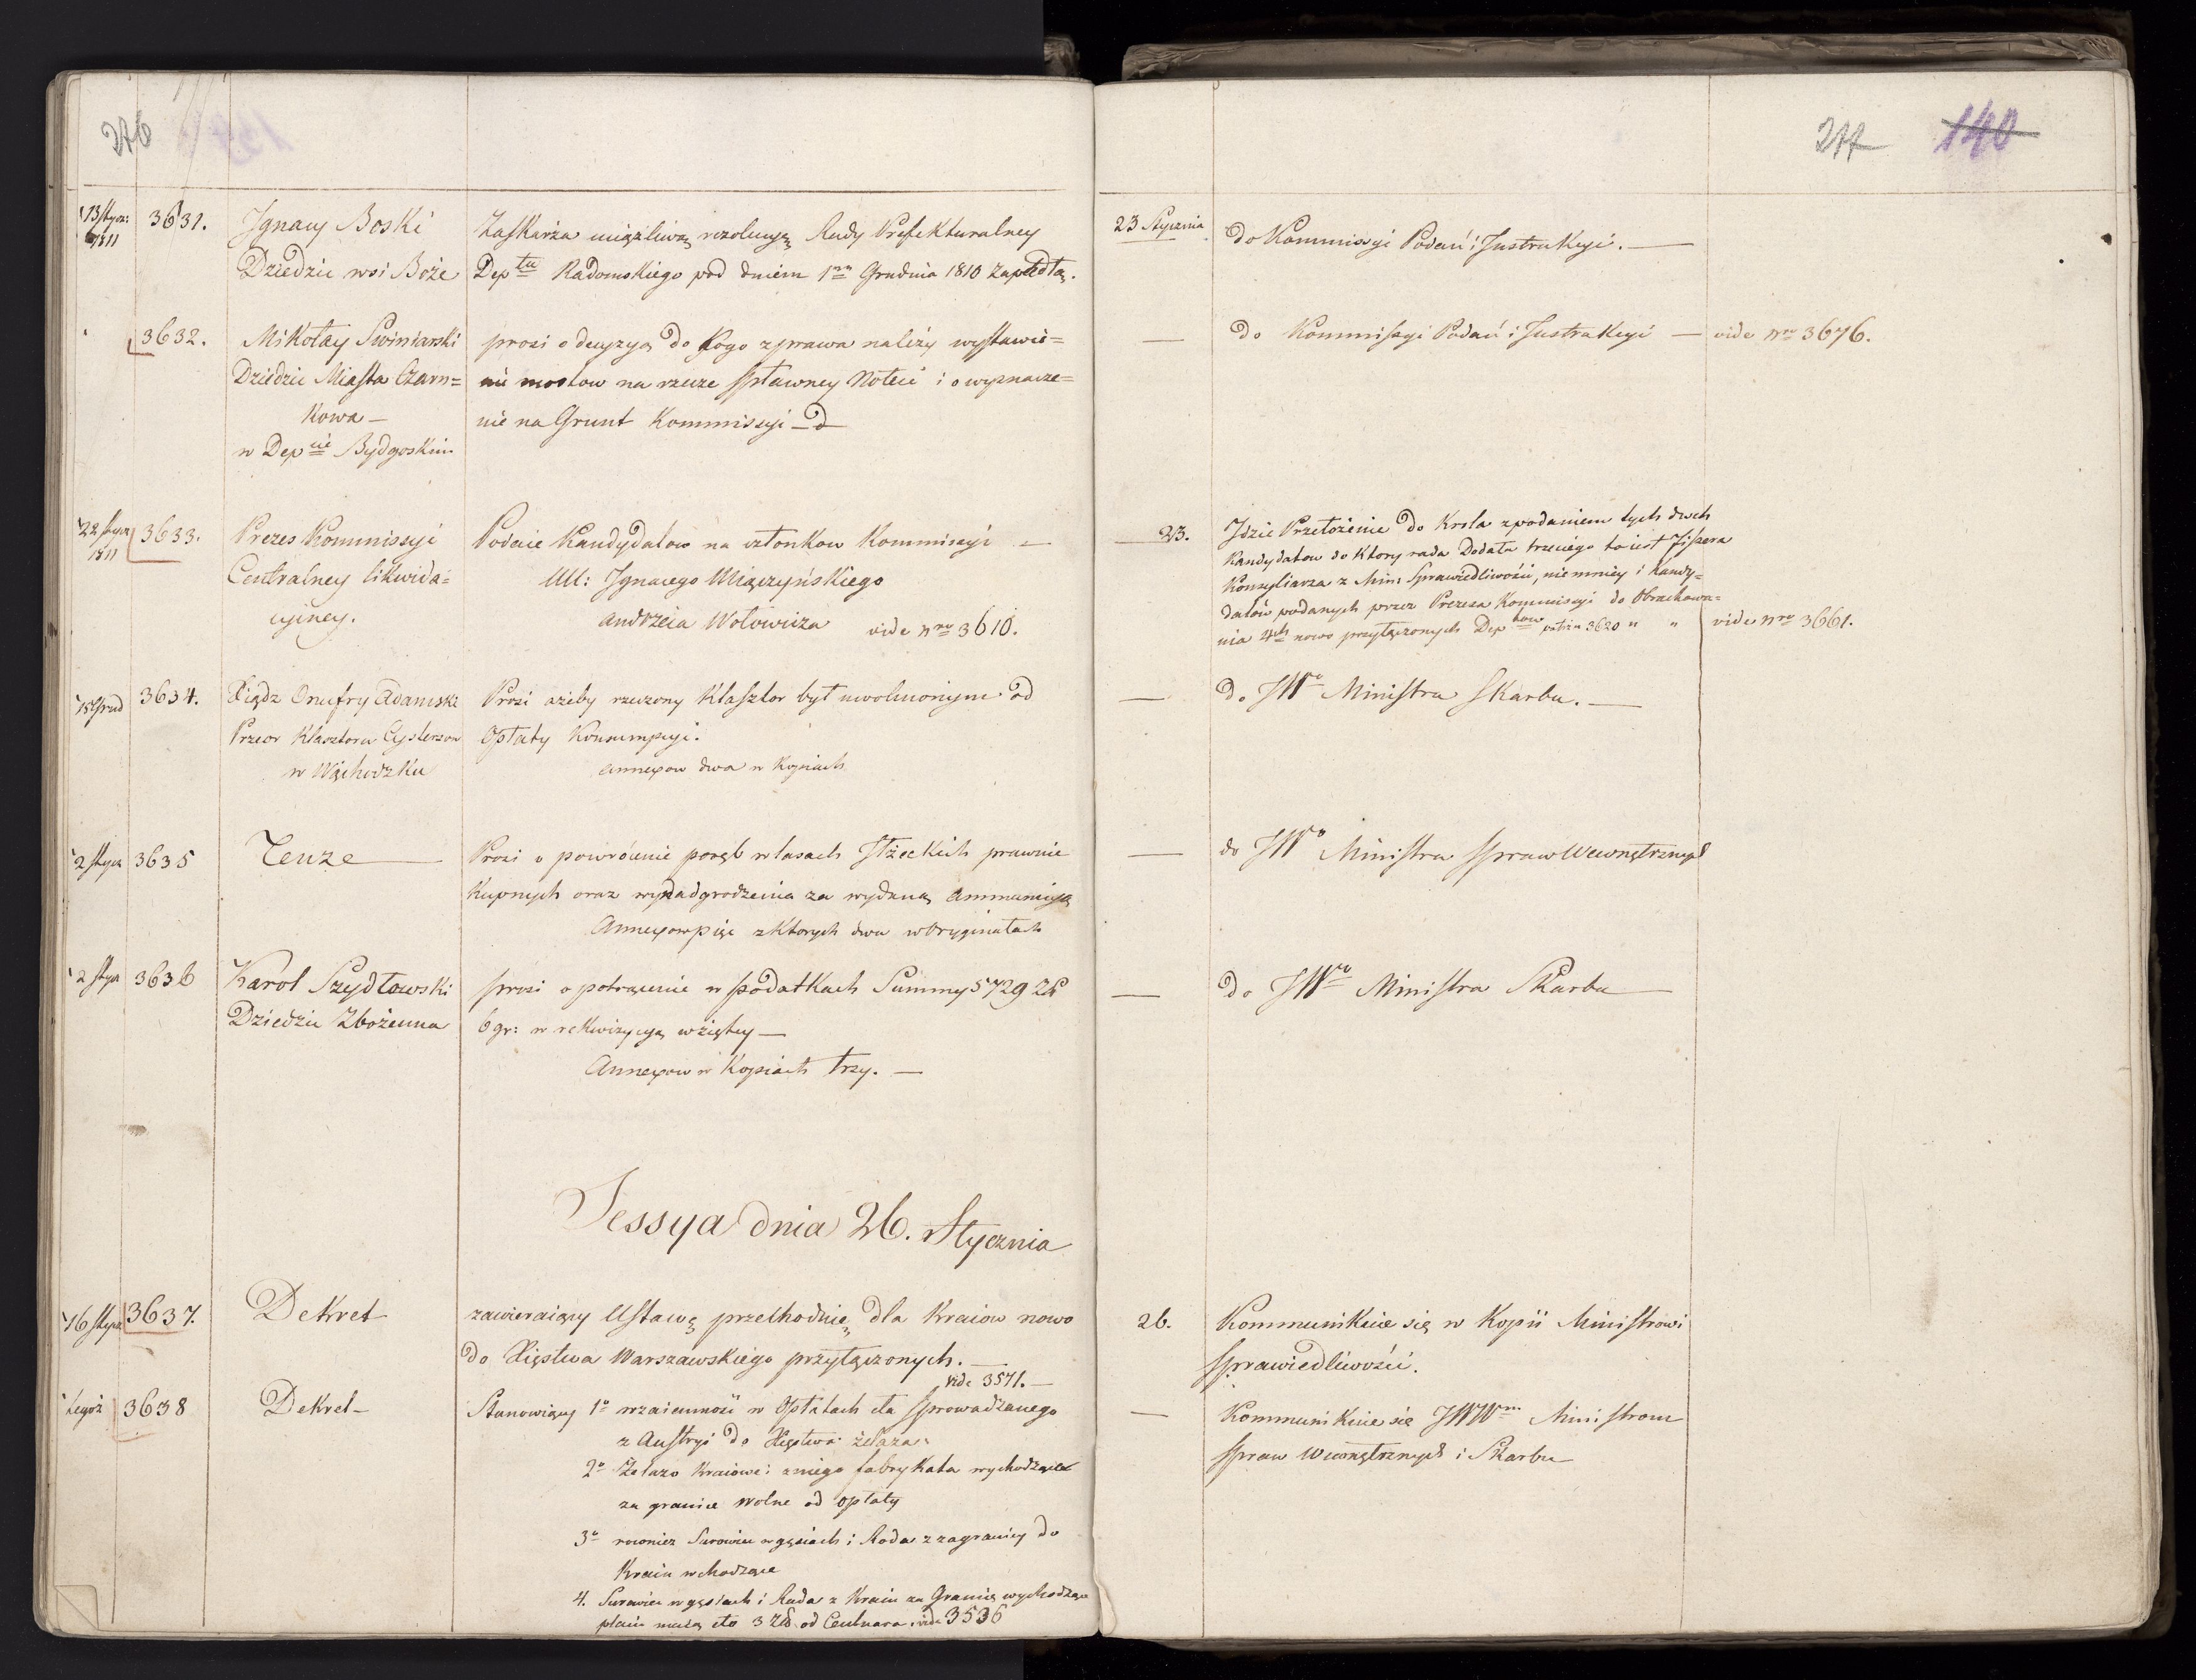 276
13 Stycz: 1811
3631.
Ignacy Boski
Dziedzic wsi Boże
Zaskarża uciążliwą rezolucyą Rady Prefekturalney
Dep<sup>tu</sup> Radomskiego pod dniem 1<sup>m</sup> Grudnia 1810 zapadłą.
3632.
Mikołay Swiniarski
Dziedzic Miasta Czarn=
kowa —
w Dep<sup>cie</sup> Bydgoskim
prosi o decyzyą do kogo zprawa należy wystawie=
nie mostow na rzece spławney Noteci i o wyznacze=
nie na Grunt Kommissyi —
22 stycz 1811
3633.
Prezes Kommissyi
Centralney likwida=
cyiney.
Podaie Kandydatow na członkow Kommissyi —
UU: Ignacego Miączyńskiego
Andrzeia Wołowicza vide Nro 3610.
18 Grud
3634.
Xiądz Onufry Adamski
Przeor Klasztoru Cystersow
w Wąchocku
Prosi ażeby rzeczony Klasztor był uwolnionym od
Opłaty Konsumpcyi.
annexow dwa w Kopiach
2 stycz
3635
Tenze —
Prosi o powrócenie poręb w lasach Iłżeckich prawnie
kupnych oraz wynadgrodzenia za wydaną ammunicyą
Annexow pięć z ktorych dwa w Oryginałach
2 stycz
3636
Karól Szydłowski
Dziedzic Zbożenna
prosi o potrącenie w podatkach Summy 5729 zł
6 gr: w rekwizycyą wziętey —
Annexow w Kopiach trzy. —
Sessya dnia 26. Stycznia
16 stycz
3637.
Dekret
zawieraiący Ustawę przechodnię dla Kraiow nowo
do Xięstwa Warszawskiego przyłączonych. —
vide 3571. —
tegoż
3638
Dekret —
Stanowiący 1<sup>o</sup> wzaiemność w Opłatach cła sprowadzanego
z Austryi do Xięstwa żelaza.
2<sup>o</sup> Żelazo kraiowe i zniego fabrykata wychodzące
za granice wolne od opłaty
3<sup>o</sup> rownież Surowiec w gęsiach i Ruda z zagranicy do
Kraiu wchodzące
4. Surowiec w gęsiach i Ruda z Kraiu za Granicę wychodzące
płacić maią cło 3 zł od Centnara. vide 3536
277 140
23 Stycznia
do Kommissyi Podań i Instrukcyi. —
— do Kommissyi Podań i Instrukcyi — vide Nro 3676.
— 23.
Idzie Przełożenie do Krola z podaniem tych dwoch
Kandydatow do ktory rada Dodała trzeciego to iest Fiszera
Konsyliarza z Min: Sprawiedliwości, niemniey i Kandy=
datów podanych przez Prezesa Kommissyi do Obrachowa=
nia 4<sup>ch</sup> nowo przyłączonych Dep<sup>tow</sup> patrz n 3620 " " vide Nro 3661.
— do JW<sup>o</sup> Ministra Skarbu. —
— do JW<sup>o</sup> Ministra Spraw Wewnętrznych
— do JW<sup>o</sup> Ministra Skarbu —
26.
Kommunikuie się w Kopii Ministrowi
Sprawiedliwości.
— Kommunikuie się JWW<sup>m</sup> Ministrom
Spraw Wewnętrznych i Skarbu